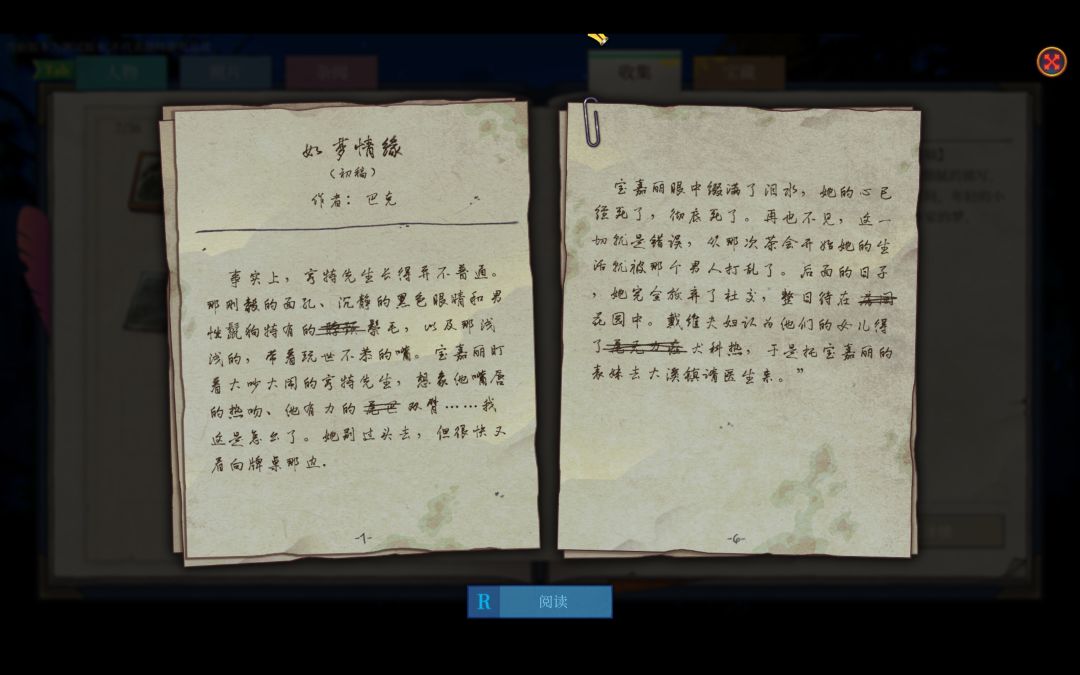 Tab
人物
照片
收集
如梦情缘
(初稿)
作者: 巴克
事实上, 亨特先生长得并不普通。
那刚毅的面孔、沉静的黑色眼睛和男
性鬣狗特有的鬃毛, 以及那浅
浅的, 带着玩世不恭的嘴。宝嘉丽盯
着大吵大闹的亨特先生, 想象他嘴唇
的热吻、他有力的双臂……我
这是怎么了。她别过头去, 但很快又
看向牌桌那边.
-1-
宝嘉丽眼中缀满了泪水, 她的心已
经死了, 彻底死了。再也不见, 这一
切就是错误, 从那次茶会开始她的生
活就被那个男人打乱了。后面的日子
, 她完全放弃了社交, 整日待在
花园中。戴维夫妇认为他们的女儿得
了犬科热, 于是托宝嘉丽的
表妹去大溪镇请医生来。”
-6-
R
阅读